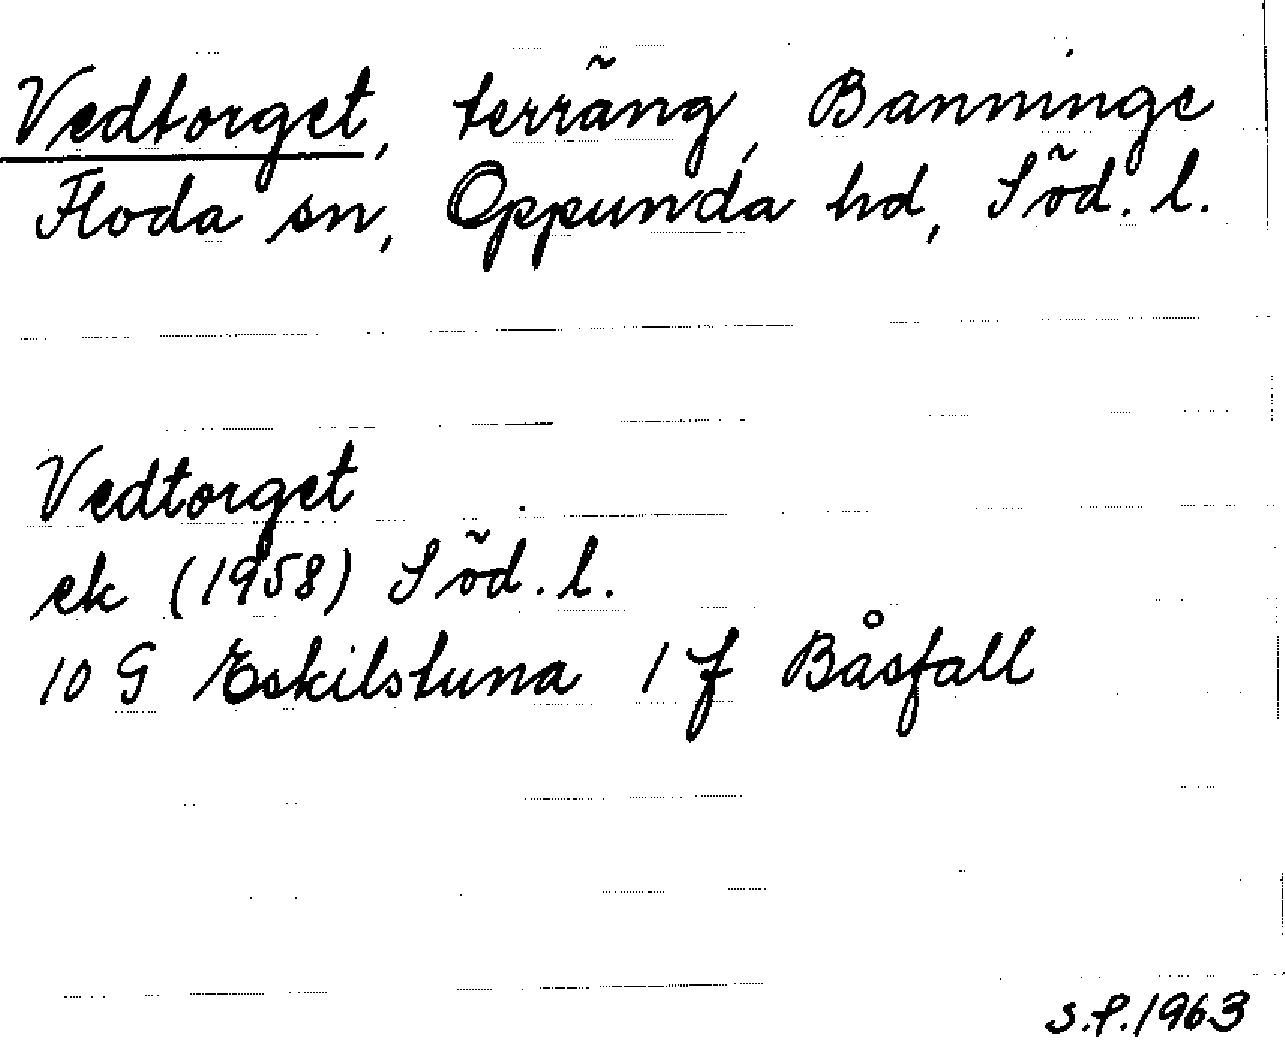 Vedtorget, terräng, Banninge
Floda sn, Oppunda hd, Söd. l.
Vedtorget
ek (1958) Söd. l.
10 G Eskilstuna 1 f Båsfall
S.P. 1963